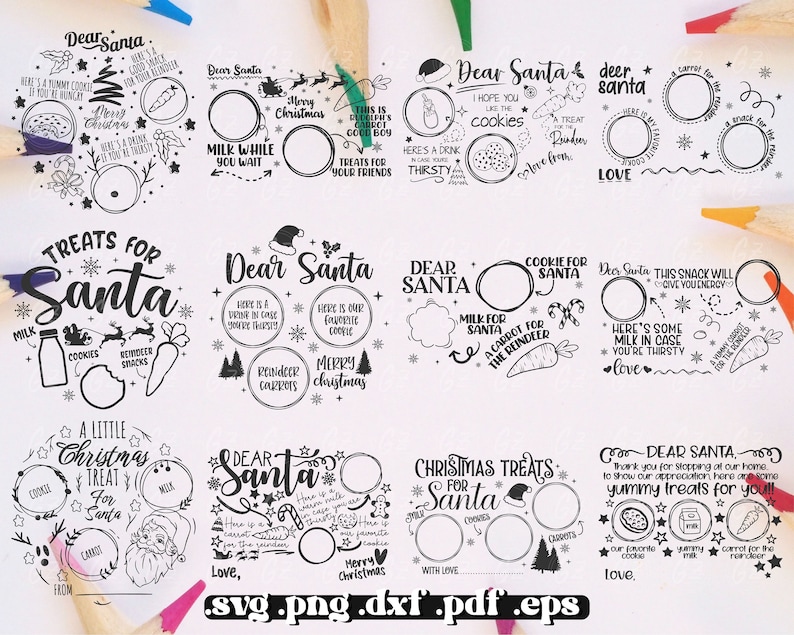 Dear Santa
HERE'S A
GOOD SNACK
FOR YOUR REINDEER
HERE'S A YUMMY COOKIE
IF YOU'RE HUNGRY
Merry
Christmas
HERE'S A DRINK
IF YOU'RE THIRSTY
Dear Santa
Merry
Christmas
THIS IS
RUDOLPH'S
CARROT
GOOD BOY
MILK WHILE
YOU WAIT
TREATS FOR
YOUR FRIENDS
Dear Santa
I HOPE
YOU
LIKE THE
cookies
A TREAT
FOR THE
Reindeer
HERE'S A DRINK
IN CASE YOU'RE
THIRSTY
Love from,
deer
santa
a carrot for the reindeer
HERE IS MY FAVORITE COOKIE
a snack for the reindeer
LOVE
TREATS FOR
Santa
MILK
COOKIES
REINDEER
SNACKS
Dear Santa
HERE IS A
DRINK IN CASE
YOU'RE THIRSTY
HERE IS OUR
FAVORITE
COOKIE
REINDEER
CARROTS
MERRY
Christmas
DEAR
SANTA
COOKIE FOR
SANTA
MILK FOR
SANTA
A CARROT FOR
THE REINDEER
Dear Santa
THIS SNACK WILL
GIVE YOU ENERGY
HERE'S SOME
MILK IN CASE
YOU'RE THIRSTY
A YUMMY CARROT
FOR THE REINDEER
love
A LITTLE
Christmas
TREAT
For
Santa
COOKIE
MILK
CARROT
FROM
DEAR
Santa
Here is a
warm milk
in case you are
thirsty
Here is a
carrot
for the reindeer
Here is
our favorite
cookie
Love,
Merry
Christmas
CHRISTMAS TREATS
FOR
Santa
MILK
COOKIES
CARROTS
WITH LOVE
DEAR SANTA,
Thank you for stopping at our home,
to show our appreciation, here are some
yummy treats for you!!
milk
our favorite
cookie
yummy
milk
carrot for the
reindeer
Love,
.svg .png .dxf .pdf .eps